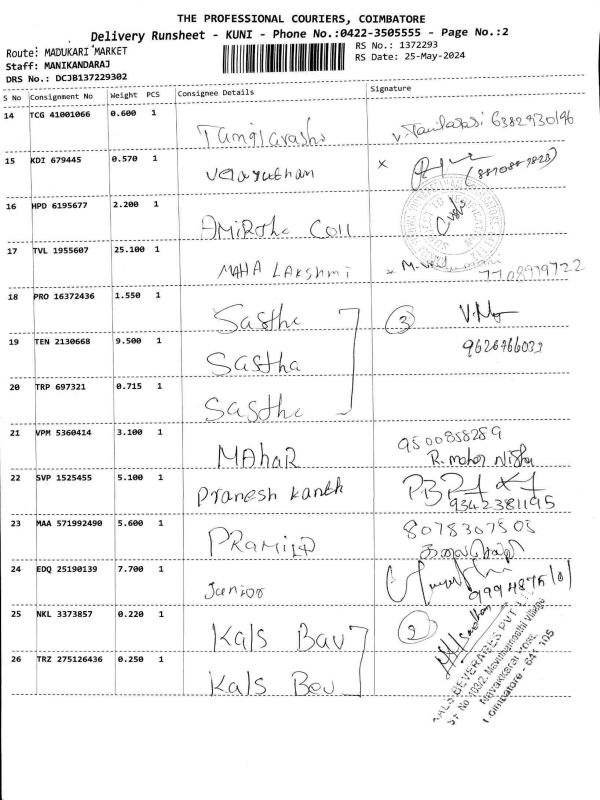 THE PROFESSIONAL COURIERS, COIMBATORE
Delivery Runsheet - KUNI - Phone No.:0422-3505555 - Page No.:2
Route: MADUKARI MARKET
RS No.: 1372293
Staff: MANIKANDARAJ
RS Date: 25-May-2024
DRS No.: DCJB137229302
S No Consignment No Weight PCS Consignee Details Signature
14 TCG 41001066 0.600 1
15 KDI 679445 0.570 1 Velayutham
16 HPD 6195677 2.200 1 AMIRtha Coll
17 TVL 1955607 25.100 1 MAHA LAKshmi
7708979722
18 PRO 16372436 1.550 1 Sastha 3
19 TEN 2130668 9.500 1 Sastha
20 TRP 697321 0.715 1 Sastha
21 VPM 5360414 3.100 1 MAhaR 9500858289
22 SVP 1525455 5.100 1 Pranesh kanth
9342381195
23 MAA 571992490 5.600 1 PRAMILA 8078307503
24 EDQ 25190139 7.700 1 Junior
25 NKL 3373857 0.220 1 Kals Bev 2
26 TRZ 275126436 0.250 1 Kals Bev
KALS BEVERAGES PVT LTD
Coimbatore - 641 105